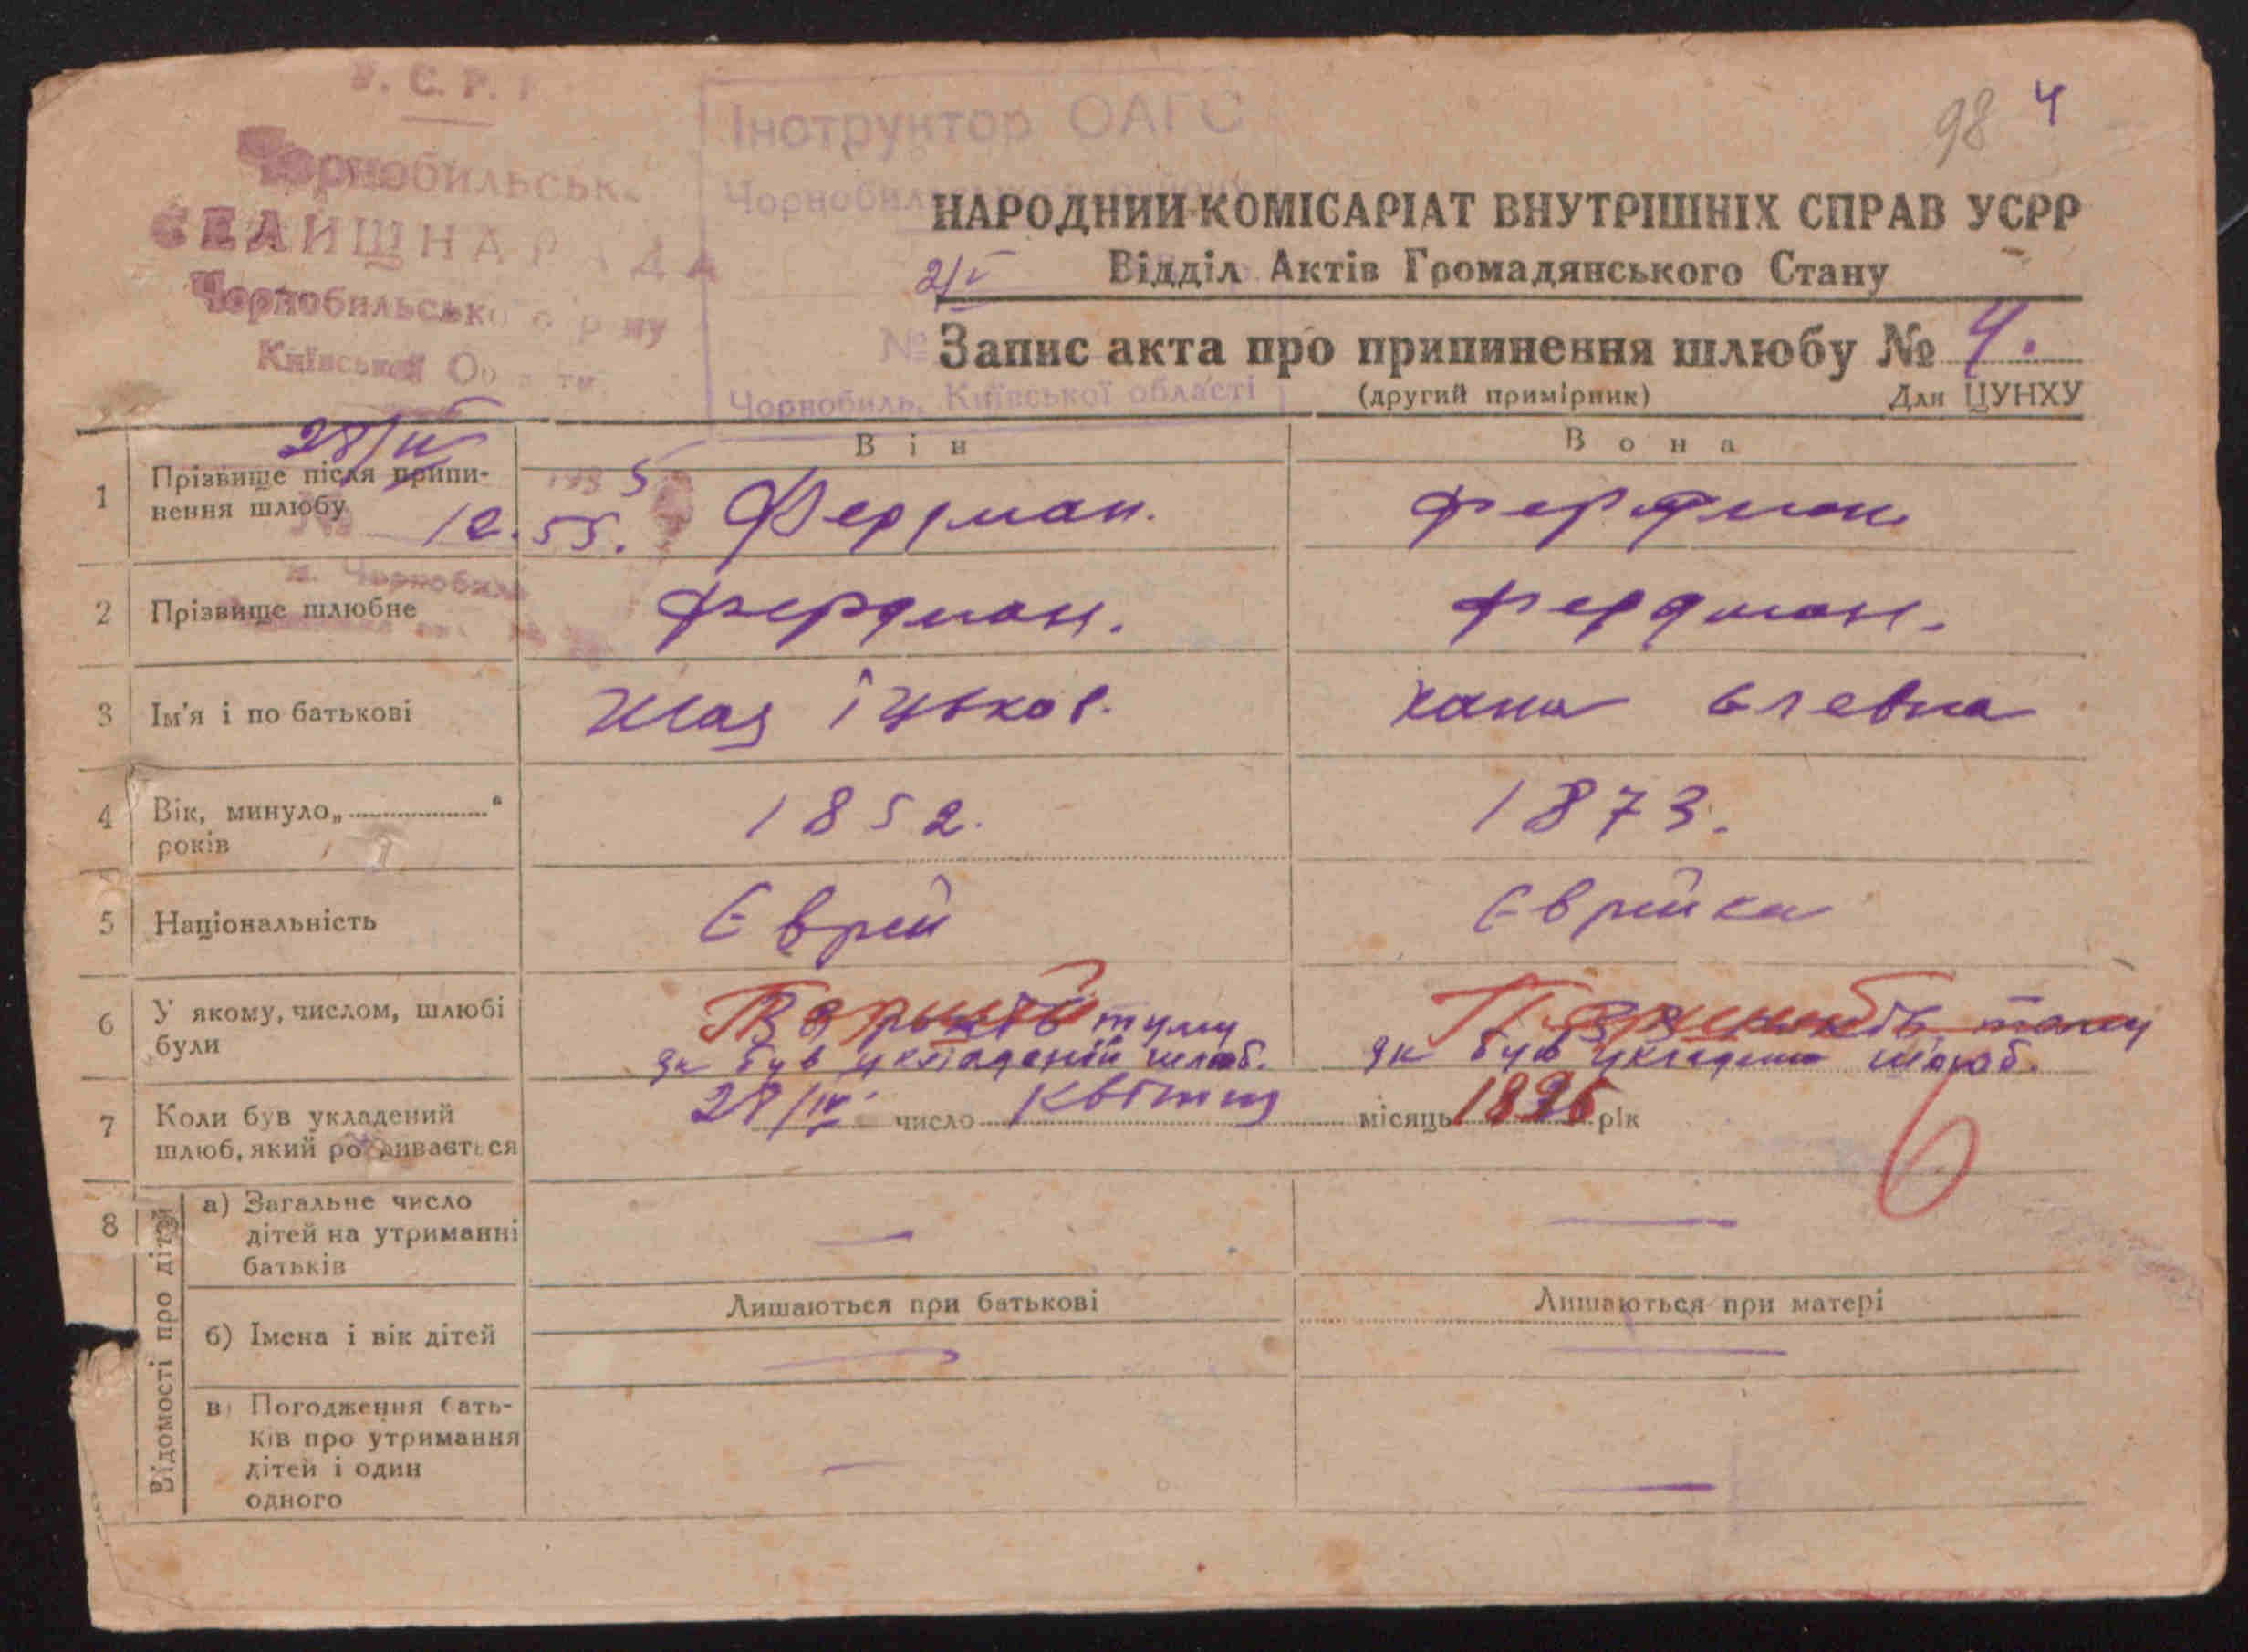 У. С. Р. Р
Чорнобильськ.
СЕЛИЩНА РАДА
Чорнобильсько
Київської
28/IV 1935
№ 12.55.
м. Чорнобиль
Інструктор ОАГС
№
Чорнобиль, Київської області
98 4
НАРОДНИЙ КОМІСАРІАТ ВНУТРІШНІХ СПРАВ УСРР
Відділ Актів Громадянського Стану
2/V
Запис акта про припинення шлюбу № 4.
(другий примірник) Для ЦУНХУ
Він Вона
1 Прізвище після припи-
нення шлюбу Фердман. Фердман
2 Прізвище шлюбне Фердман. Фердман.
3 Ім'я і по батькові Іцьков. Хана
4 Вік, минуло „ “
років 1852. 1873.
5 Національність Єврей Єврейка
6 У якому, числом, шлюбі
були тому тому
як був укладений шлюб. як був укладений шлюб.
7 Коли був укладений
шлюб, який розривається 28/IV число Квітня місяць 1896 рік
6
8 Відомості про дітей
а) Загальне число
дітей на утриманні
батьків — —
Лишаються при батькові Лишаються при матері
б) Імена і вік дітей — —
в) Погодження бать-
ків про утримання
дітей і один
одного — —